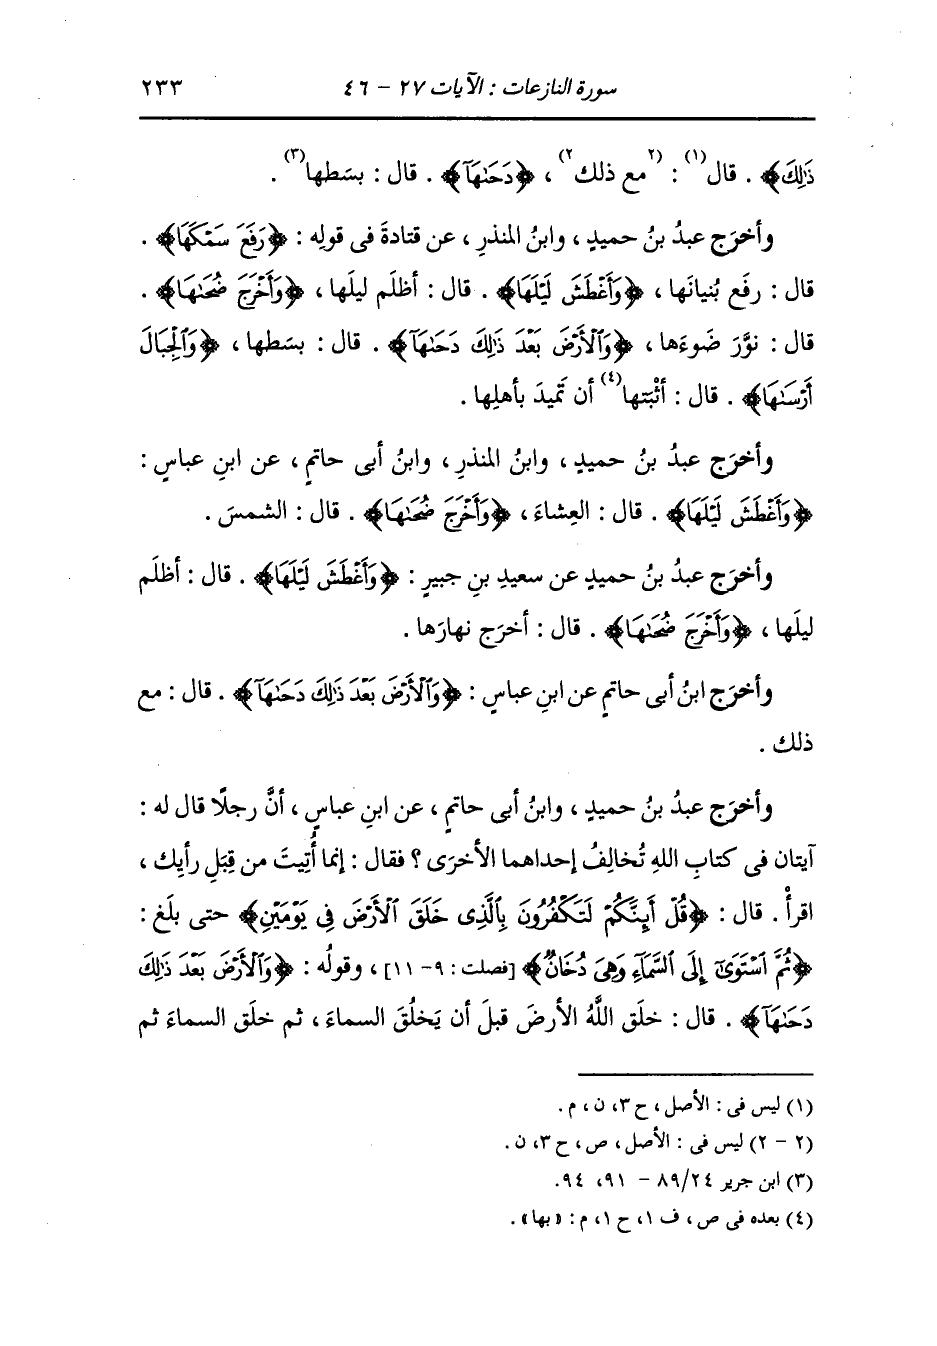 سورة النازعات : الآيات ٢٧ - ٤٦ ٢٣٣
ذَٰلِكَ﴾ . قال(١) : (٢مع ذلك٢) ، ﴿دَحَىٰهَآ﴾ . قال : بسَطها(٣) .
وأخرَج عبدُ بنُ حميدٍ ، وابنُ المنذرِ ، عن قتادةَ فى قولِه : ﴿رَفَعَ سَمْكَهَا﴾ .
قال : رفَع بُنيانَها ، ﴿وَأَغْطَشَ لَيْلَهَا﴾ . قال : أظلَم ليلَها ، ﴿وَأَخْرَجَ ضُحَىٰهَا﴾ .
قال : نوَّرَ ضَوءَها ، ﴿وَٱلْأَرْضَ بَعْدَ ذَٰلِكَ دَحَىٰهَآ﴾ . قال : بسَطها ، ﴿وَٱلْجِبَالَ
أَرْسَىٰهَا﴾ . قال : أثْبَتها(٤) أن تَميدَ بأهلِها .
وأخرَج عبدُ بنُ حميدٍ ، وابنُ المنذرِ ، وابنُ أبى حاتمٍ ، عن ابنِ عباسٍ :
﴿وَأَغْطَشَ لَيْلَهَا﴾ . قال : العِشاءَ ، ﴿وَأَخْرَجَ ضُحَىٰهَا﴾ . قال : الشمسَ .
وأخرَج عبدُ بنُ حميدٍ عن سعيدِ بنِ جبيرٍ : ﴿وَأَغْطَشَ لَيْلَهَا﴾ . قال : أظلَم
ليلَها ، ﴿وَأَخْرَجَ ضُحَىٰهَا﴾ . قال : أخرَج نهارَها .
وأخرَج ابنُ أبى حاتمٍ عن ابنِ عباسٍ : ﴿وَٱلْأَرْضَ بَعْدَ ذَٰلِكَ دَحَىٰهَآ﴾ . قال : مع
ذلك .
وأخرَج عبدُ بنُ حميدٍ ، وابنُ أبى حاتمٍ ، عن ابنِ عباسٍ ، أنَّ رجلًا قال له :
آيتان فى كتابِ اللهِ تُخالِفُ إحداهما الأخرَى ؟ فقال : إنما أُتِيتَ من قِبَلِ رأيِك ،
اقرأْ . قال : ﴿قُلْ أَئِنَّكُمْ لَتَكْفُرُونَ بِٱلَّذِى خَلَقَ ٱلْأَرْضَ فِى يَوْمَيْنِ﴾ حتى بلَغ :
﴿ثُمَّ ٱسْتَوَىٰٓ إِلَى ٱلسَّمَآءِ وَهِىَ دُخَانٌ﴾ [فصلت : ٩- ١١] ، وقولُه : ﴿وَٱلْأَرْضَ بَعْدَ ذَٰلِكَ
دَحَىٰهَآ﴾ . قال : خلَق اللَّهُ الأرضَ قبلَ أن يَخلُقَ السماءَ ، ثم خلَق السماءَ ثم
(١) ليس فى : الأصل ، ح ٣، ن ، م .
(٢ - ٢) ليس فى : الأصل ، ص ، ح ٣، ن .
(٣) ابن جرير ٨٩/٢٤ - ٩١، ٩٤.
(٤) بعده فى ص ، ف ١، ح ١، م : « بها» .